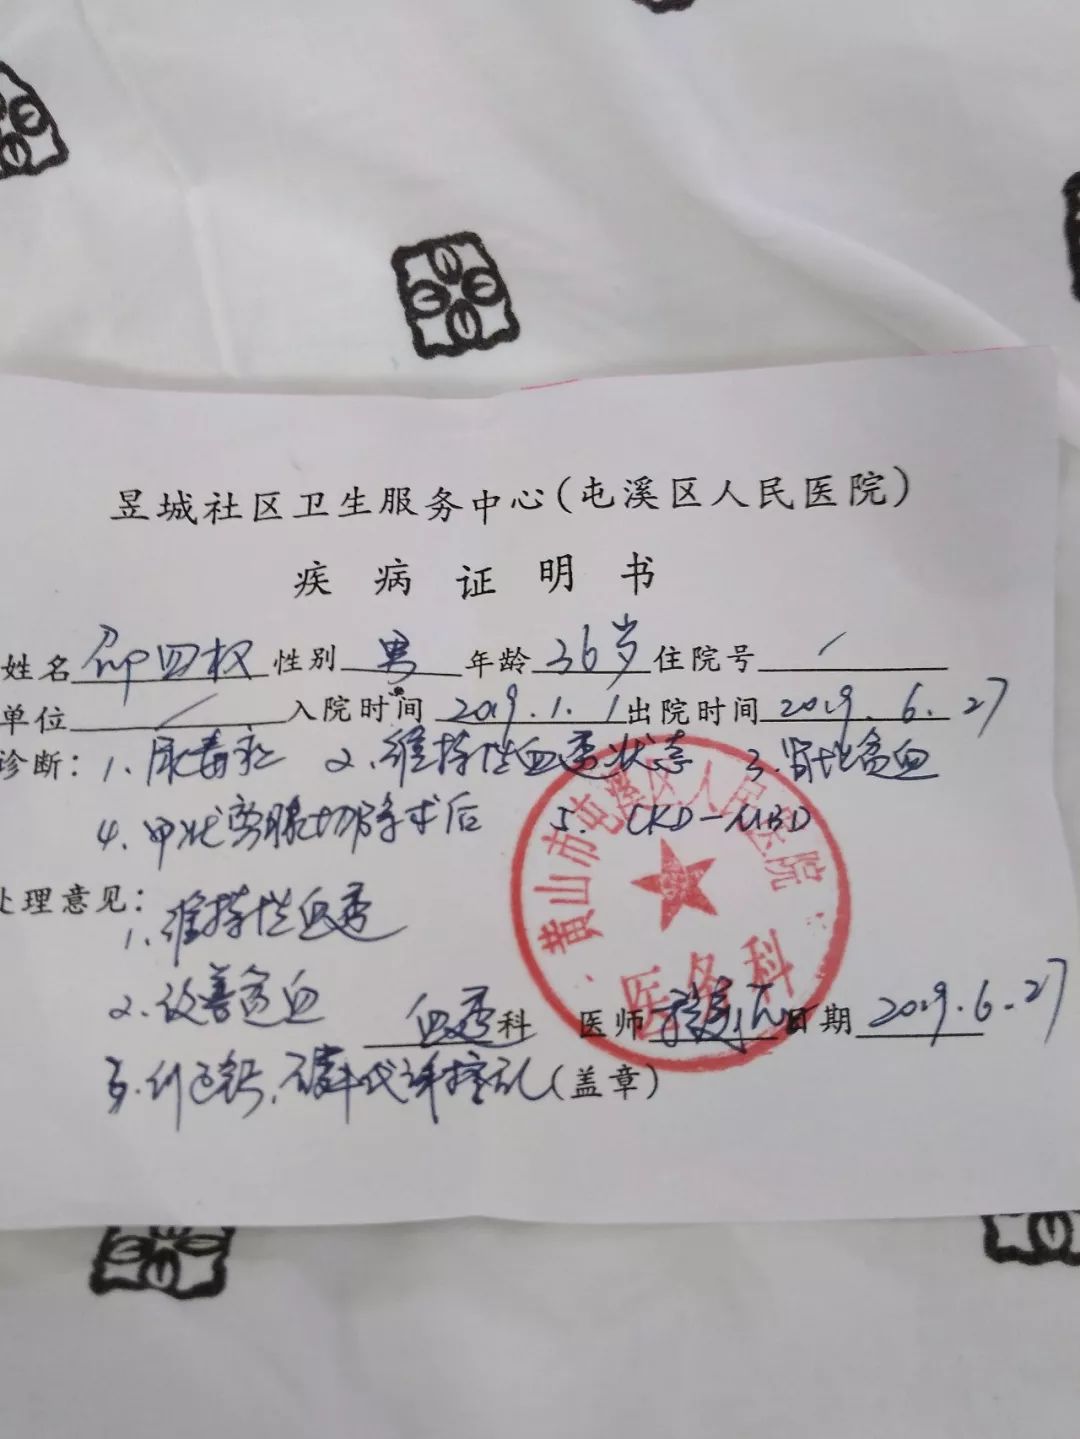 昱城社区卫生服务中心(屯溪区人民医院)
疾病证明书
姓名 四权 性别 男 年龄 36岁 住院号 /
单位 / 入院时间 2019.1.1 出院时间 2019.6.27
诊断: 1、尿毒症 2、维持性血透状态 3、肾性贫血
4、甲状旁腺切除术后 5、CKD-MBD
处理意见: 1、维持性血透
2、改善贫血
血透科 医师 日期 2019.6.27
3、纠正钙、磷代谢紊乱 (盖章)
黄山市屯溪区人民医院
医务科